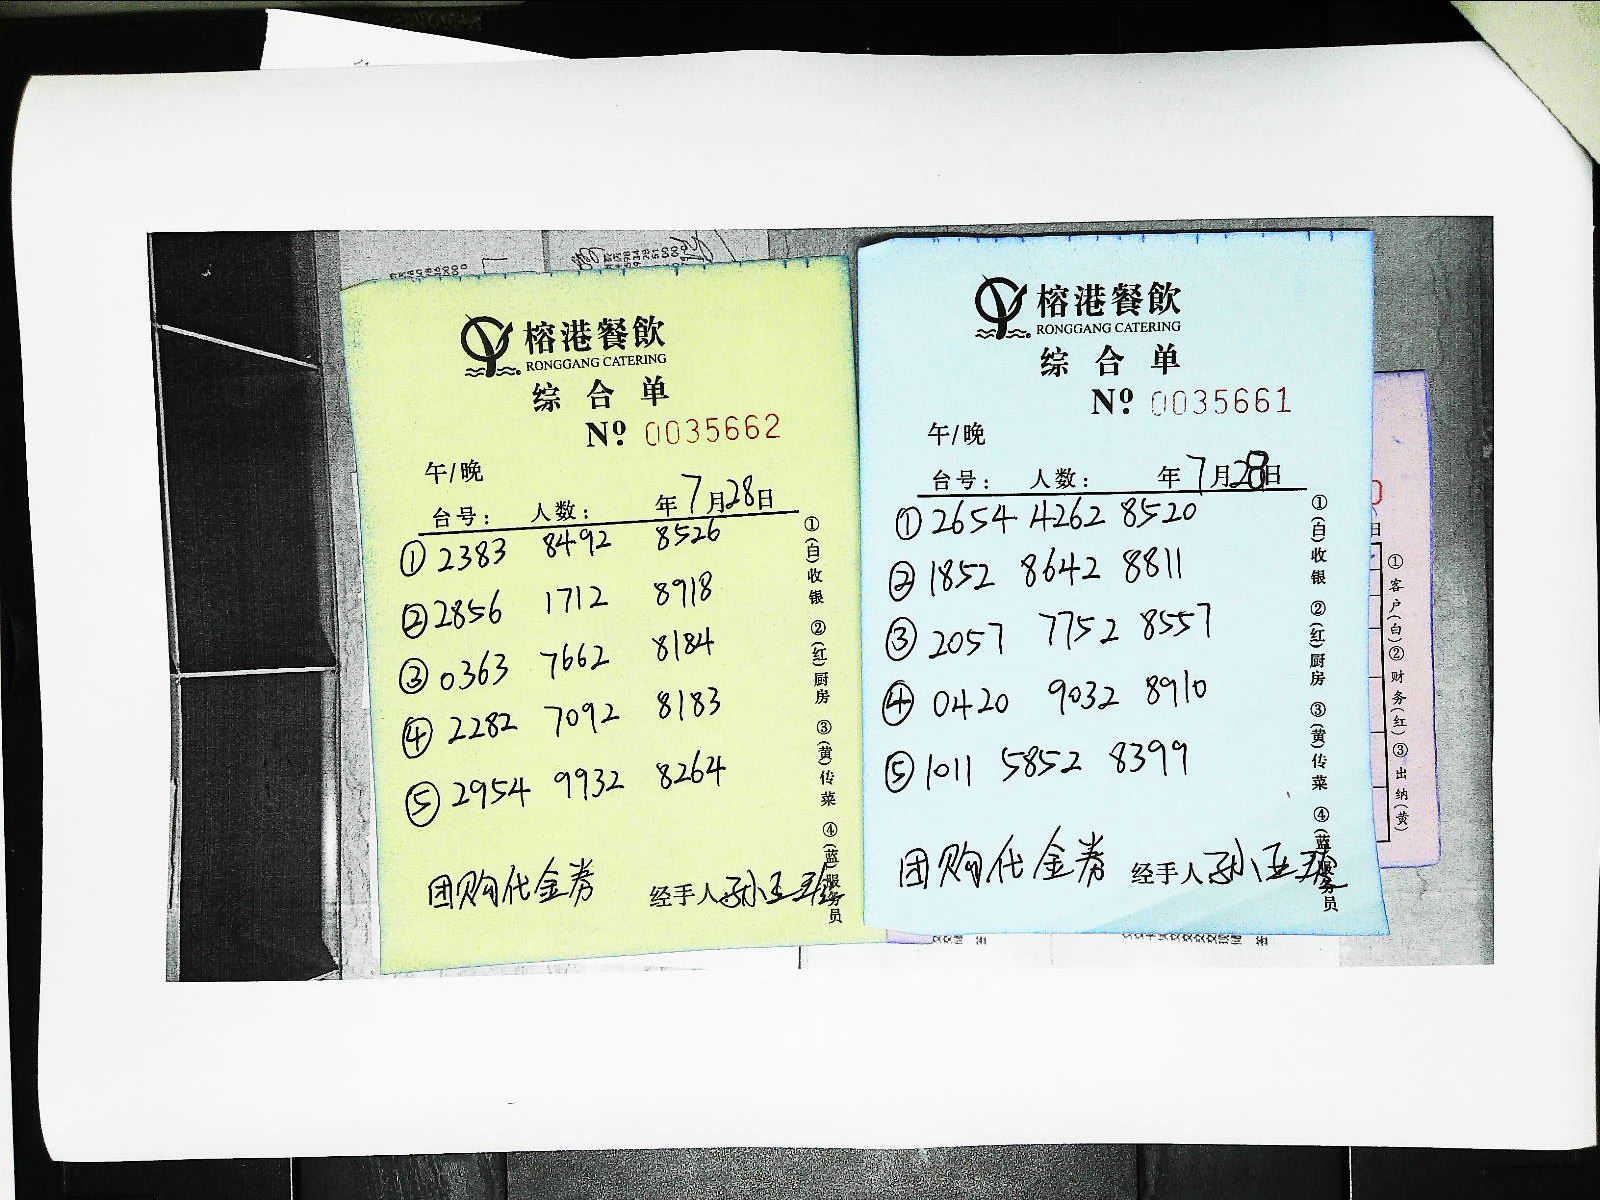 榕港餐飲
RONGGANG CATERING
综合单
Nº 0035662
午/晚
台号： 人数： 年7月28日
①2383 8492 8526
②2856 1712 8918
③0363 7662 8184
④2282 7092 8183
⑤2954 9932 8264
团购代金券 经手人孙玉珍
①(白)收银 ②(红)厨房 ③(黄)传菜 ④(蓝)服务员
榕港餐飲
RONGGANG CATERING
综合单
Nº 0035661
午/晚
台号： 人数： 年7月28日
①2654 4262 8520
②1852 8642 8811
③2057 7752 8557
④0420 9032 8910
⑤1011 5852 8399
团购代金券 经手人孙亚
①(白)收银 ②(红)厨房 ③(黄)传菜 ④(蓝)服务员
①客户(白)②财务(红)③出纳(黄)